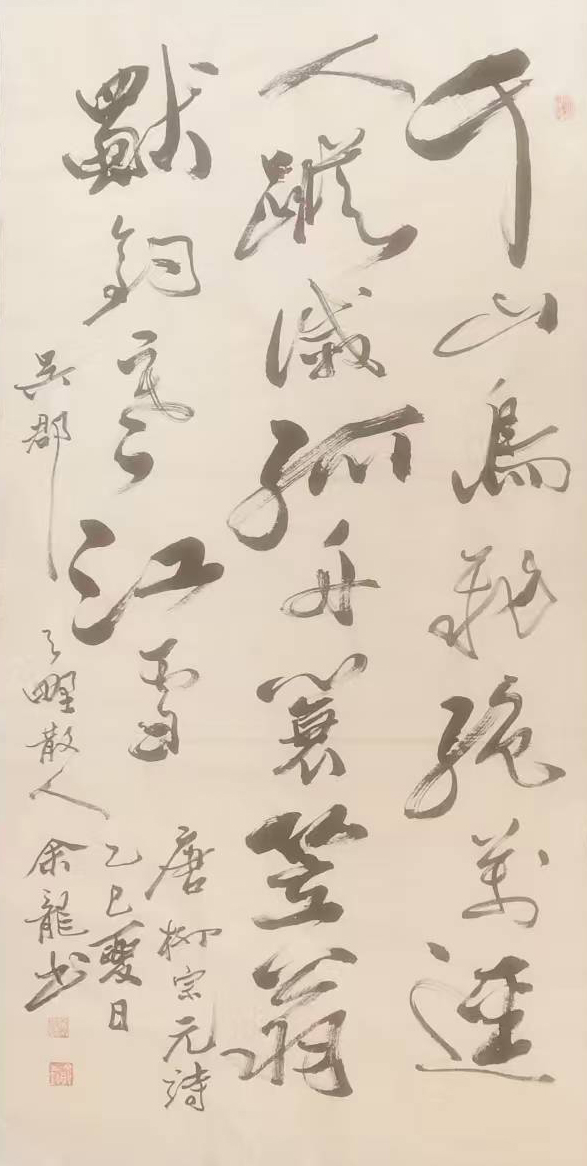 千山鳥飛絕萬逕
人蹤滅孤舟蓑笠翁
獨釣寒江雪
唐柳宗元詩
乙巳夏日
吳郡之野散人余龍书